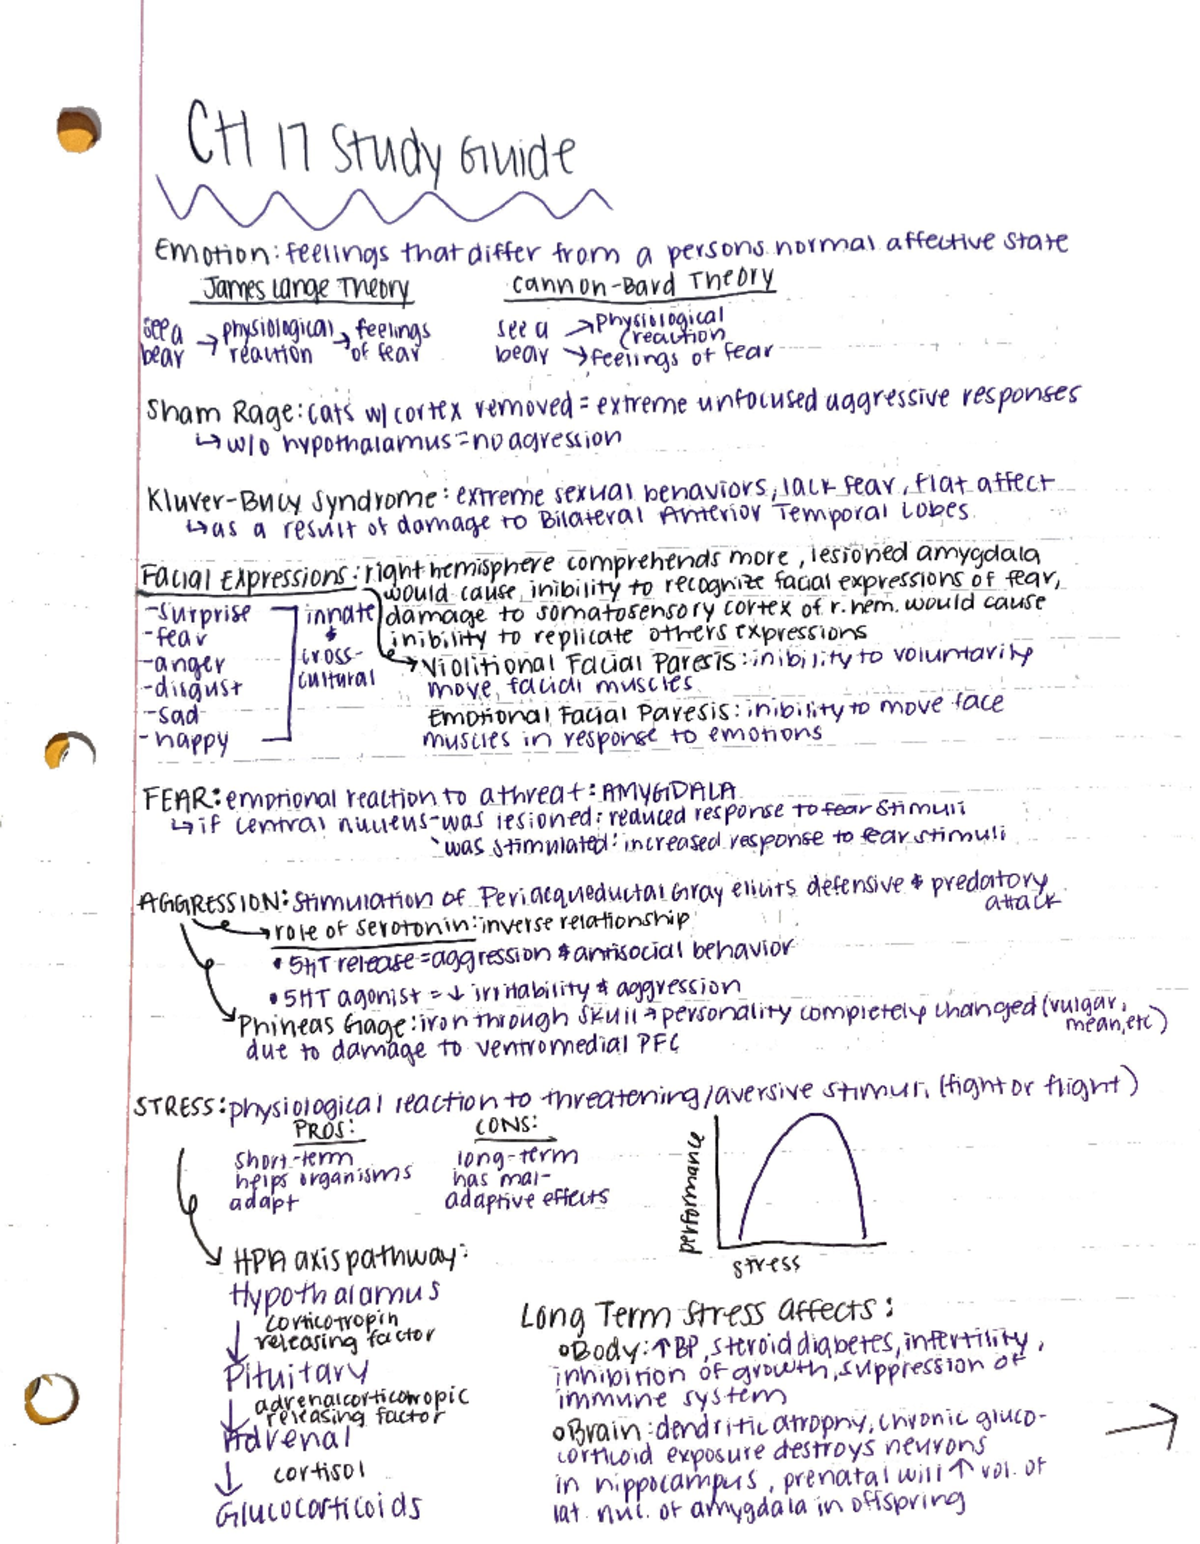 CH 17 Study Guide
Emotion: feelings that differ from a persons normal affective state
James Lange Theory
see a bear → physiological reaction → feelings of fear
Cannon-Bard Theory
see a bear → physiological reaction
→ feelings of fear
Sham Rage: cats w/ cortex removed = extreme unfocused aggressive responses
↳ w/o hypothalamus = no agression
Kluver-Bucy Syndrome: extreme sexual behaviors, lack fear, flat affect
↳ as a result of damage to Bilateral Anterior Temporal Lobes
Facial Expressions: right hemisphere comprehends more, lesioned amygdala
would cause inibility to recognize facial expressions of fear,
damage to somatosensory cortex of r. hem. would cause
inibility to replicate others expressions
-surprise
-fear
-anger
-disgust
-sad
-happy
innate
&
cross-
cultural
→ Violitional Facial Paresis: inibility to voluntarily
move facial muscles
Emotional Facial Paresis: inibility to move face
muscles in response to emotions
FEAR: emotional reaction to a threat: AMYGDALA
↳ if central nucleus - was lesioned: reduced response to fear stimuli
was stimulated: increased response to fear stimuli
AGGRESSION: Stimulation of Periacqueductal Gray elicits defensive & predatory
attack
→ role of serotonin: inverse relationship
• 5HT release = aggression & antisocial behavior
• 5HT agonist = ↓ irritability & aggression
Phineas Gage: iron through skull → personality completely changed (vulgar,
mean, etc)
due to damage to ventromedial PFC
STRESS: physiological reaction to threatening/aversive stimuli (fight or flight)
PROS:
short-term
helps organisms
adapt
CONS:
long-term
has mal-
adaptive effects
performance
stress
HPA axis pathway:
Hypothalamus
↓ corticotropin
releasing factor
Pituitary
↓ adrenalcorticotropic
releasing factor
Adrenal
↓ cortisol
Glucocorticoids
Long Term Stress Affects:
o Body: ↑ BP, steroid diabetes, infertility,
inhibition of growth, suppression of
immune system
o Brain: dendritic atrophy, chronic gluco-
corticoid exposure destroys neurons
in hippocampus, prenatal will ↑ vol. of
lat. nuc. of amygdala in offspring
→